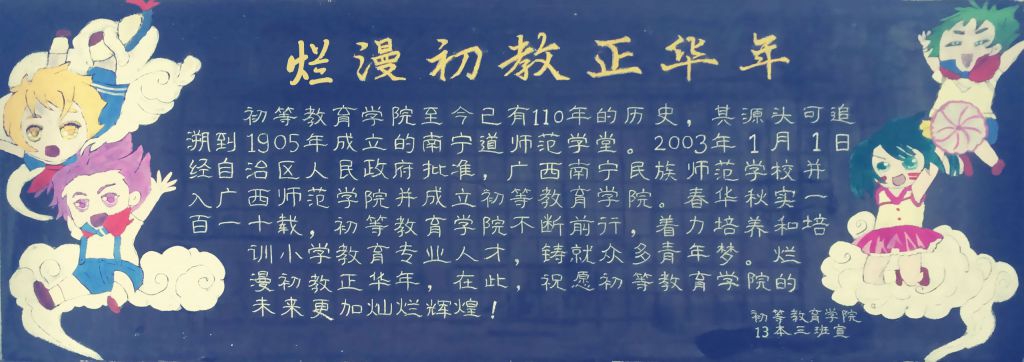 烂漫初教正华年
初等教育学院至今已有110年的历史，其源头可追
溯到1905年成立的南宁道师范学堂。2003年1月1日
经自治区人民政府批准，广西南宁民族师范学校并
入广西师范学院并成立初等教育学院。春华秋实一
百一十载，初等教育学院不断前行，着力培养和培
训小学教育专业人才，铸就众多青年梦。烂
漫初教正华年，在此，祝愿初等教育学院的
未来更加灿烂辉煌！
初等教育学院
13本三班宣